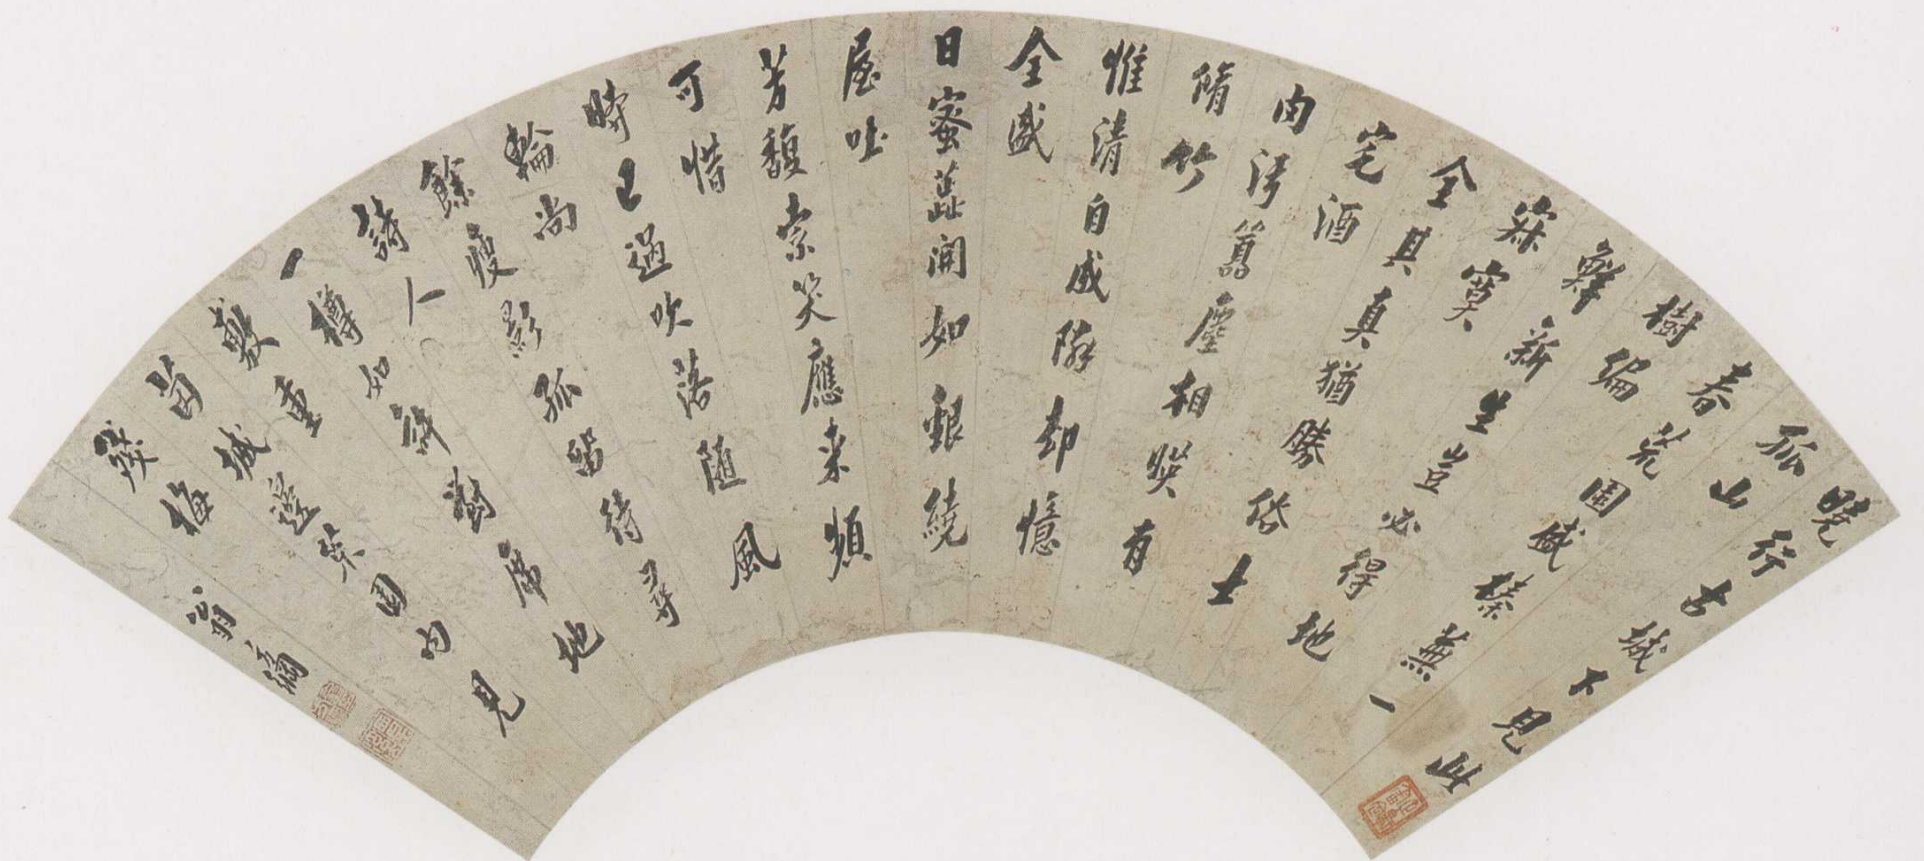 曉行古城下見此
孤山
春荒園盛榛蕪一
樹偏
鮮新生豈必得地
寂寞
全其真猶勝俗士
宅酒
肉污塵相映有
脩竹
惟清自成隣却憶
全盛
日蜜蕋開如銀繞
屋吐
芳馥索笑應来頻
可惜
時已過吹落隨風
輪尚
餘瘦影孤留待尋
詩人
一樽如解對席地
敷重
茵城邊菜園內見
殘梅
翁方綱